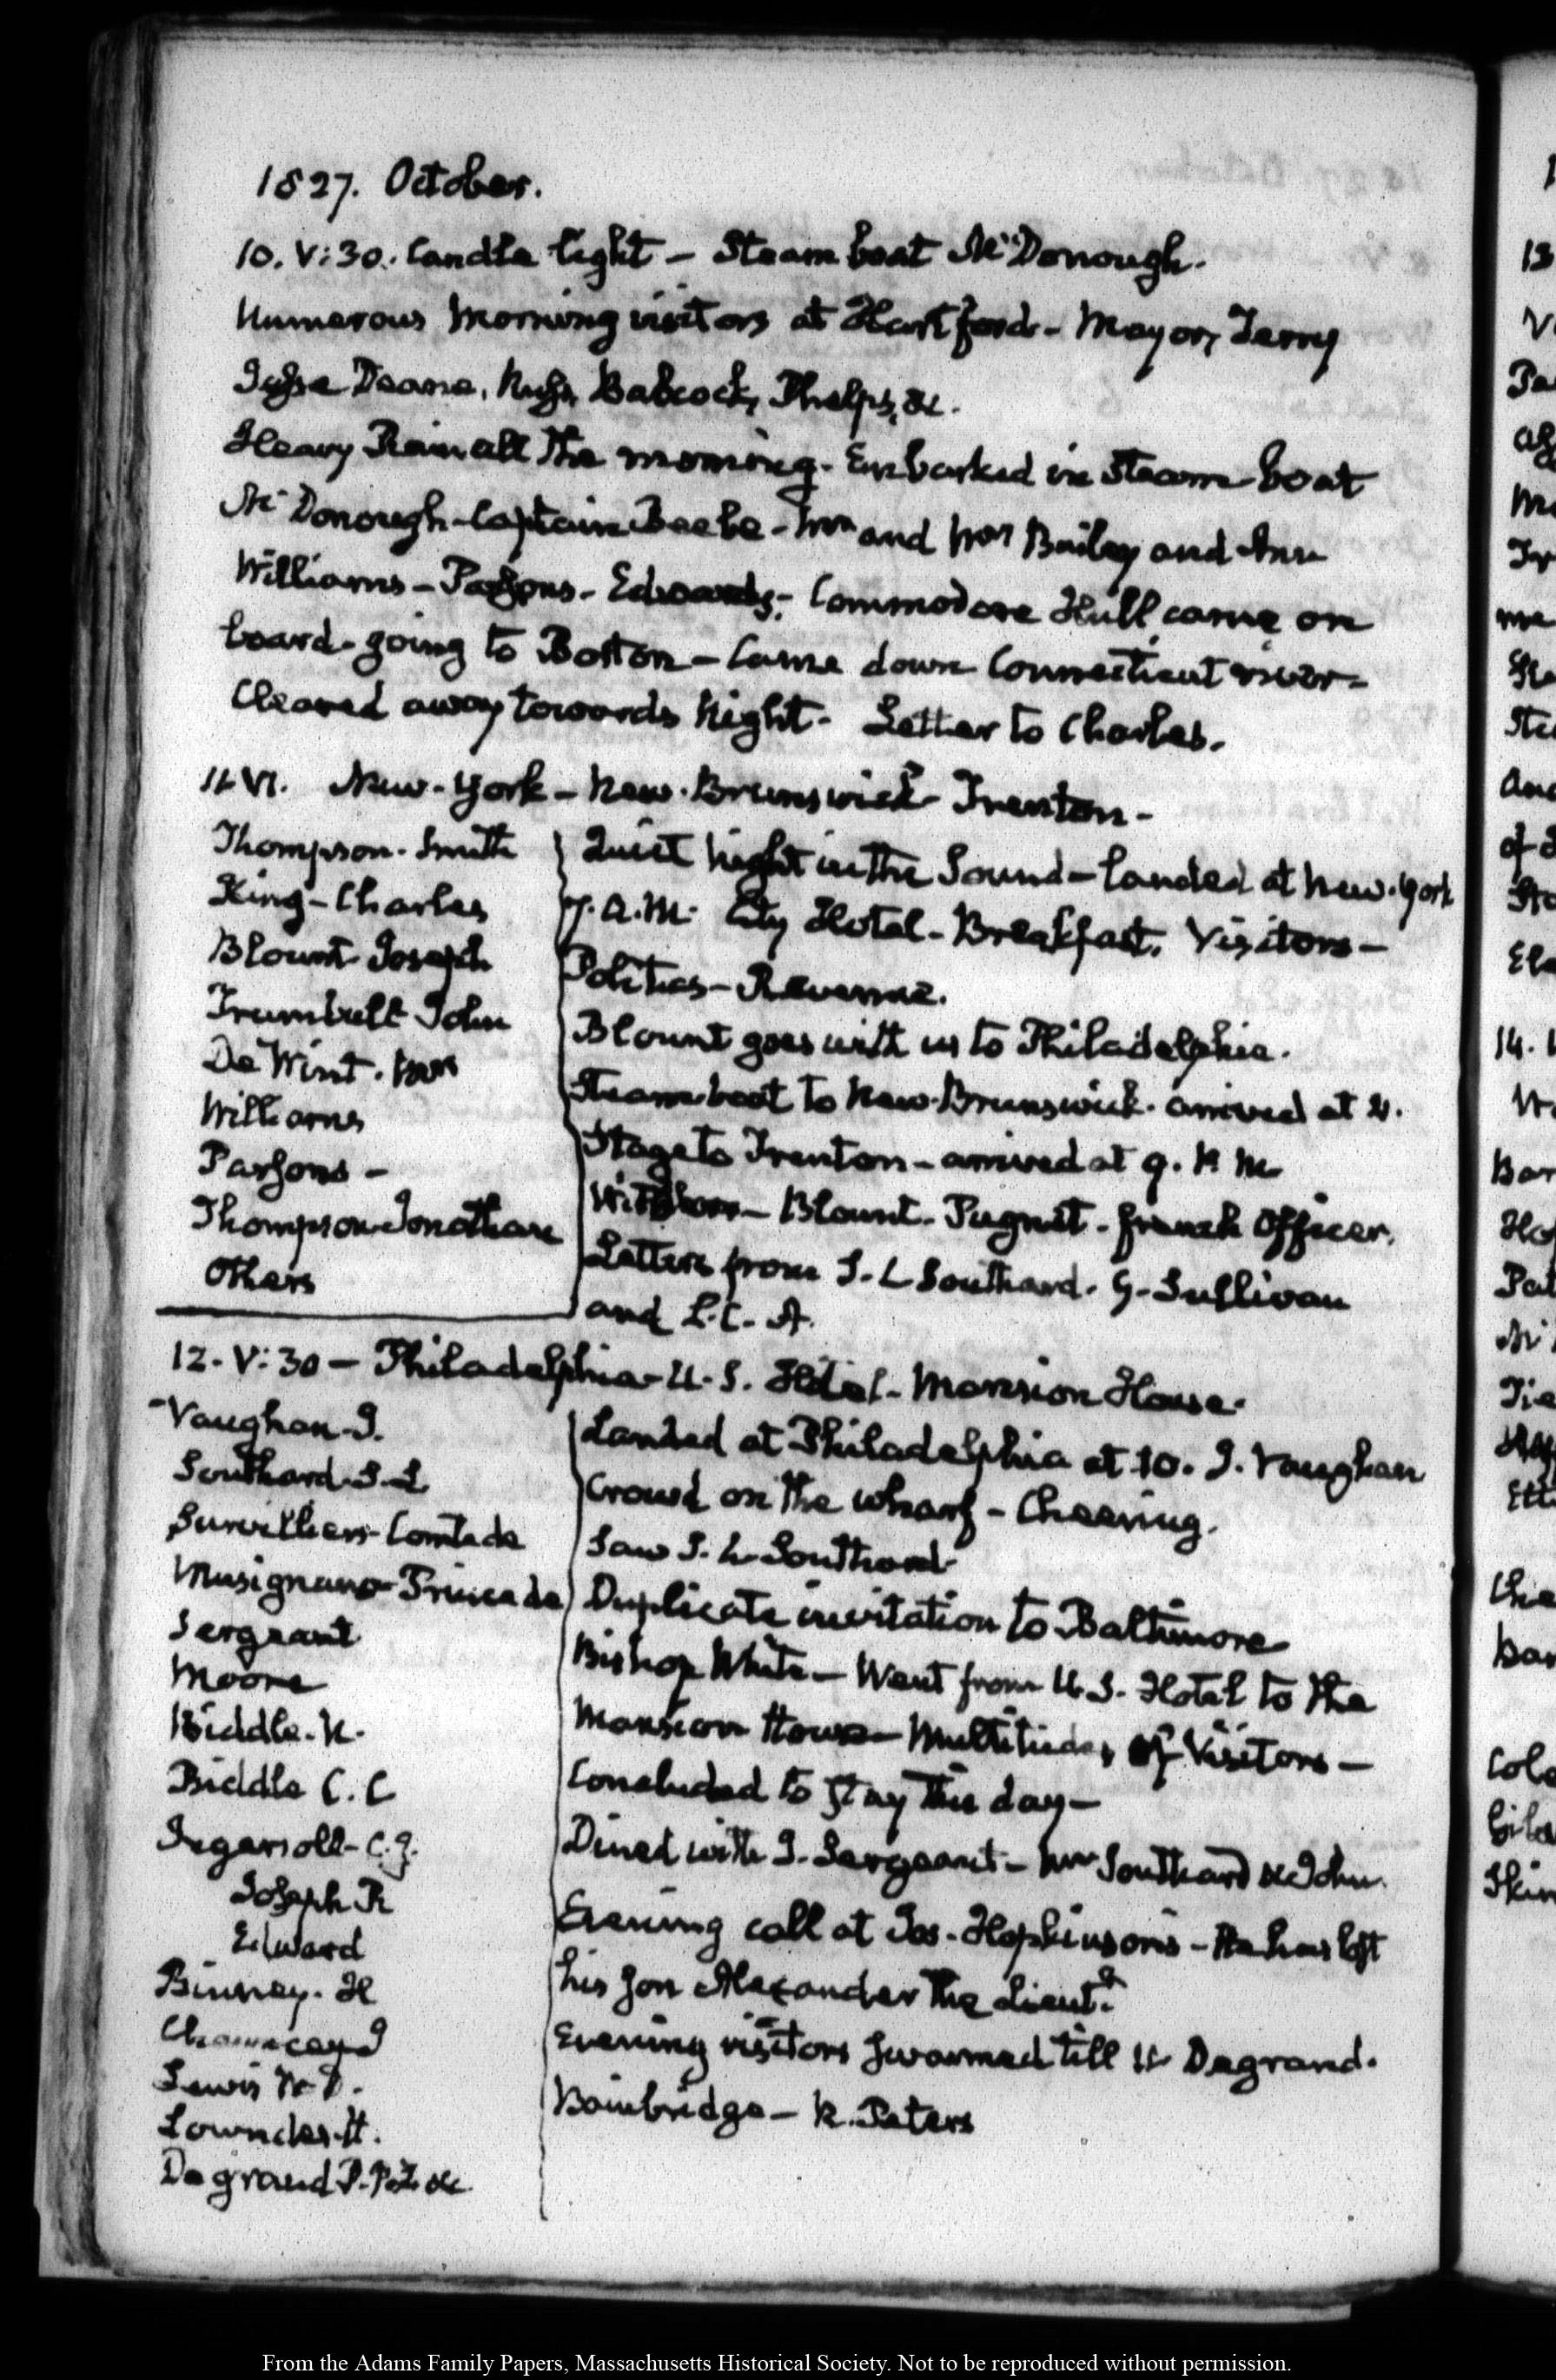 1827. October.
10. V:30. Candle light – Steam boat McDonough.
Numerous morning visitors at Hartford – Mayor, Terry
Deane, Babcock, Phelps, &c.
Heavy Rain all the morning. Embarked in Steam-boat
McDonough – Captain Beebe – and Mrs Bailey and Ann
Williams – Parsons – Edwards – Commodore Hull came on
board – going to Boston – Came down Connecticut river –
Cleared away towards Night – Letter to Charles.
11. VI. New-York – New-Brunswick – Trenton –
Thompson – Smith
King – Charles
Blount Joseph
Trumbull John
De Wint. Mrs
Williams
Parsons –
Thompson Jonathan
Others
Quiet Night in the Sound – landed at New-York
7. A.M. City Hotel – Breakfast. Visitors –
Politics – Revenue.
Blount goes with us to Philadelphia.
Steam-boat to New-Brunswick. arrived at 4.
Stage to Trenton – arrived at 9. P.M.
Visitors – Blount – Pugnet – french Officer.
Letters from S. L Southard. G. Sullivan
and L. C. A.
12. V:30 – Philadelphia – U.S. Hotel – Mansion House.
Vaughan J.
Southard S. L
Survilliers – Comte de
Musignano – Prince de
Sergeant
Moore
Biddle. N.
Biddle C. C
Ingersoll – C. J.
Joseph R
Edward
Binney. H
Chauncey
Lewis W. D.
Lowndes
Degrand P. P. F. &c.
Landed at Philadelphia at 10. J. Vaughan
Crowd on the wharf – Cheering.
Saw S. L. Southard
Duplicate invitation to Baltimore
Bishop White – Went from U.S. Hotel to the
Mansion House – Multitudes of Visitors –
Concluded to stay this day –
Dined with J. Sergeant – Mr Southard & John.
Evening call at Jos. Hopkinson's – He has lost
his Son Alexander the Lieutt.
Evening visitors swarmed till 11. Degrand.
Bainbridge – R. Peters
From the Adams Family Papers, Massachusetts Historical Society. Not to be reproduced without permission.